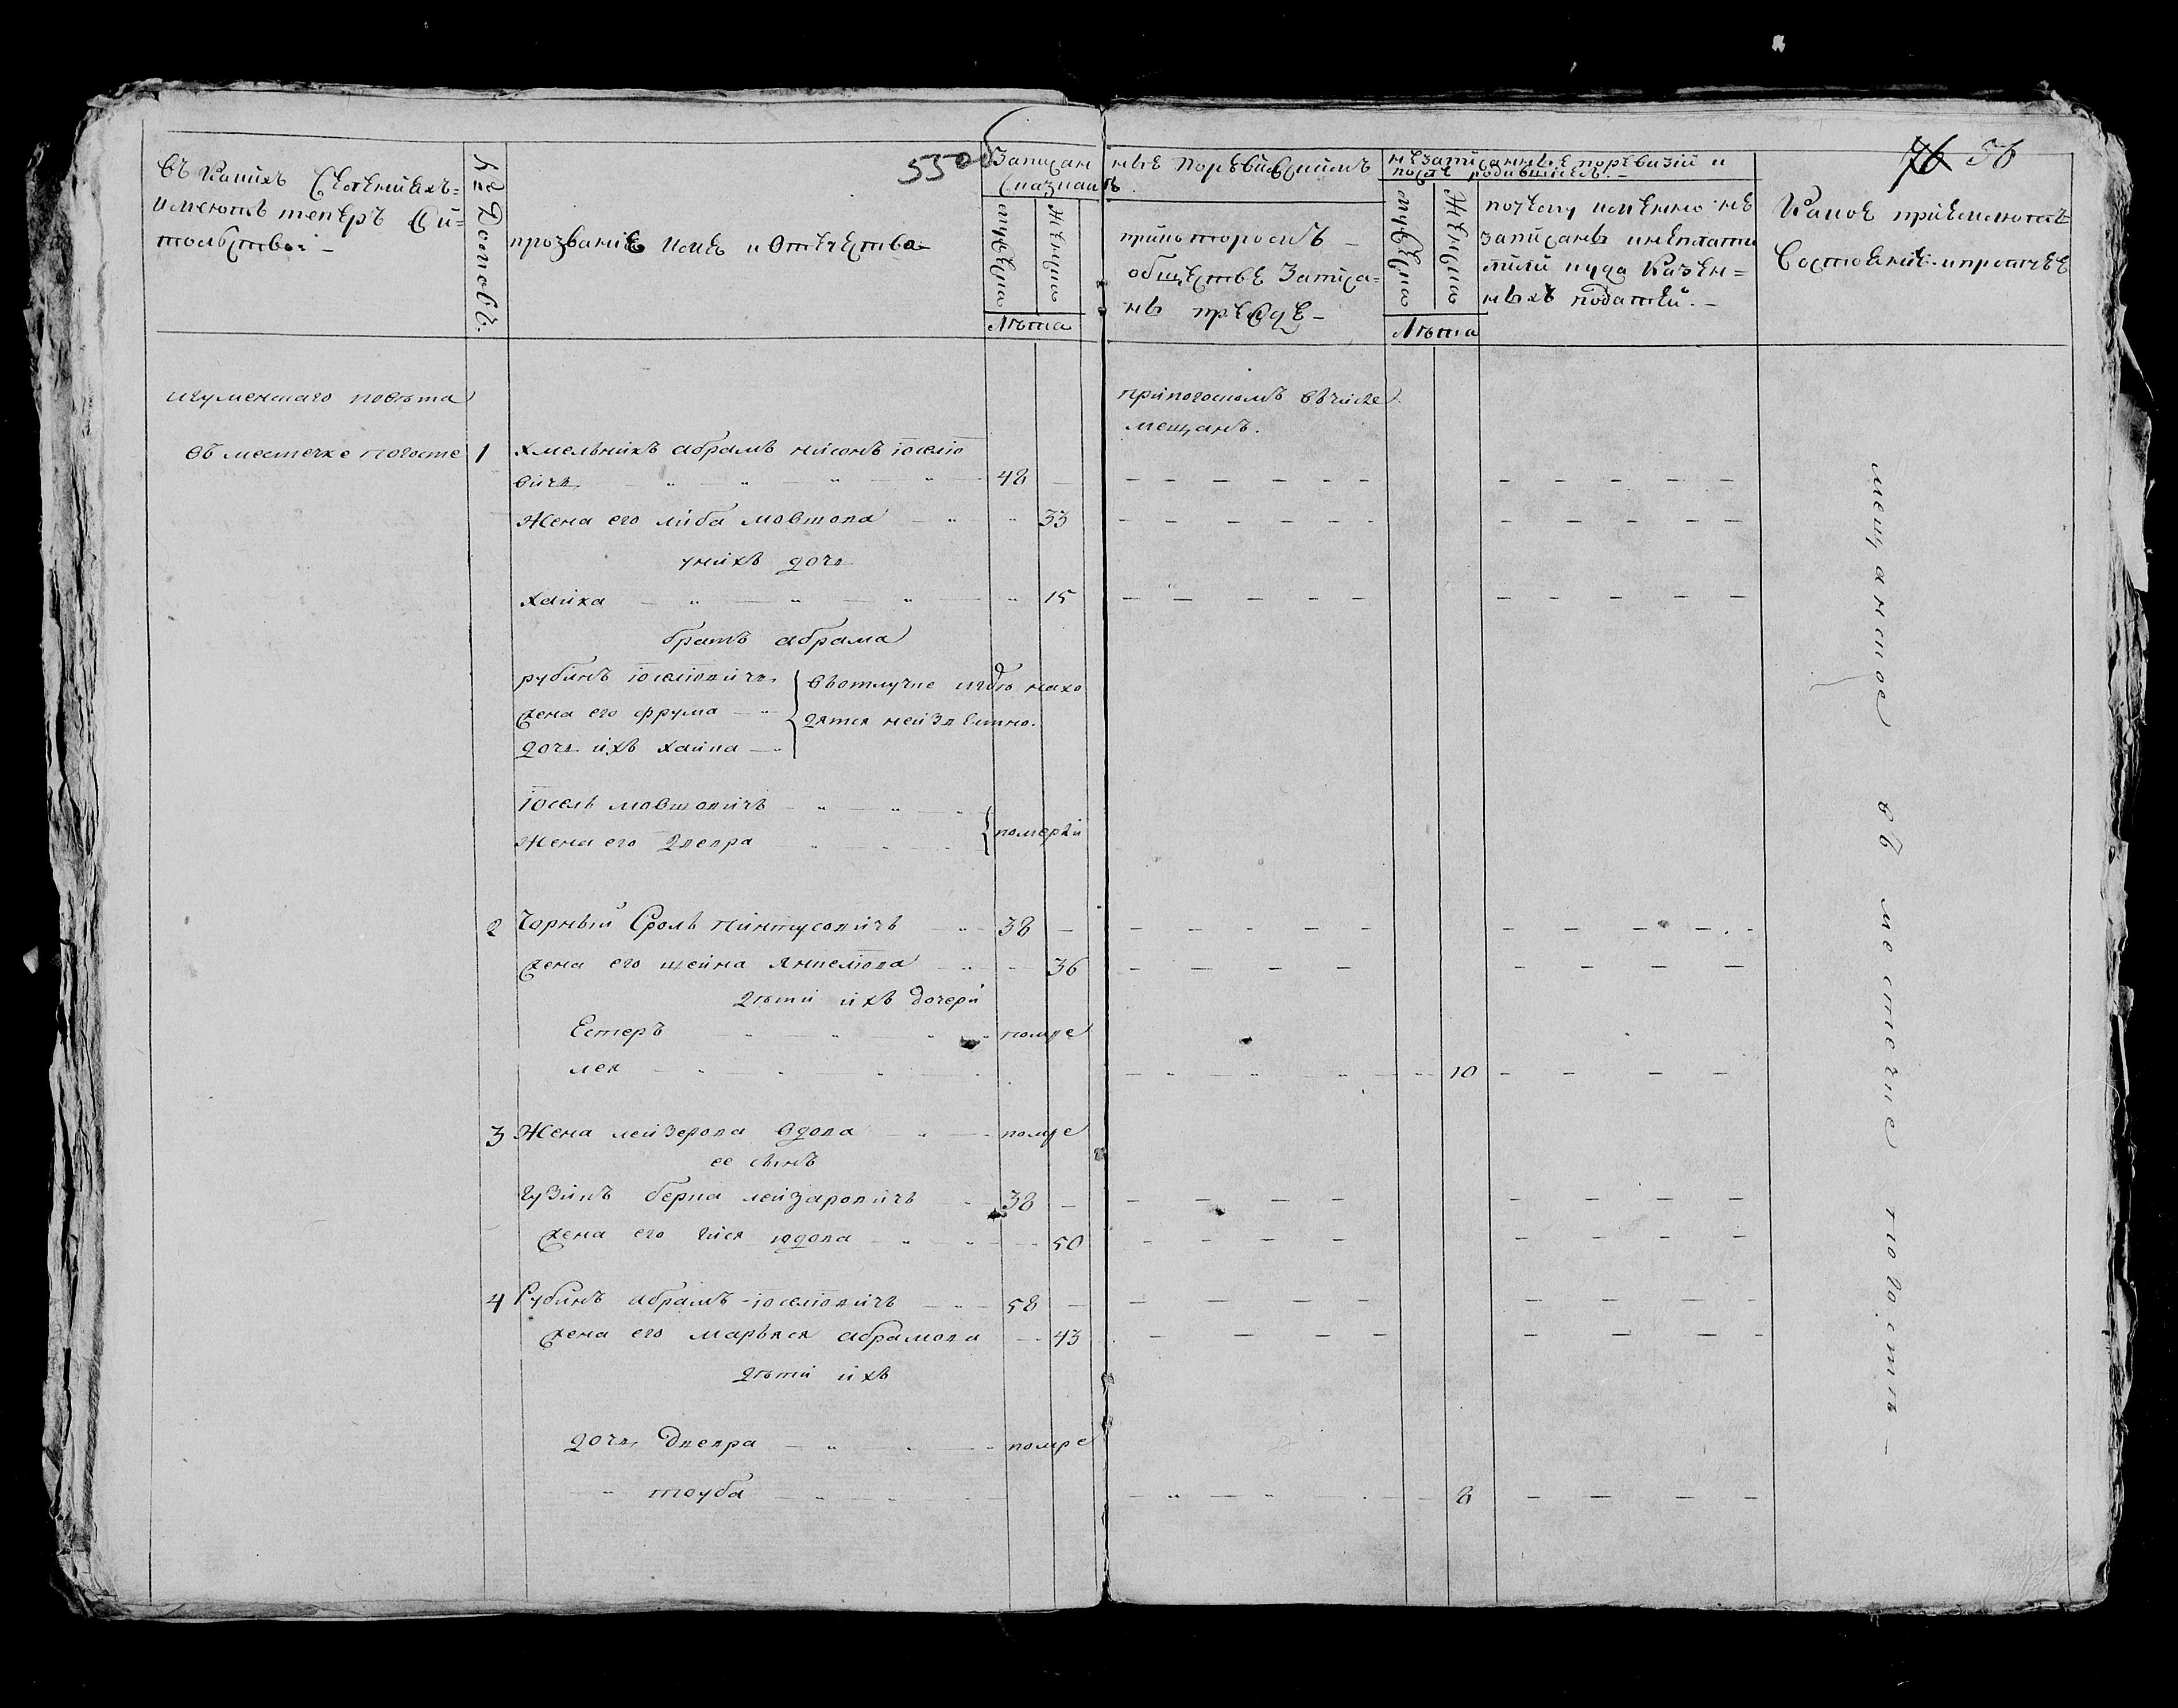 550
76 56
Въ какихъ селенияхъ
имеютъ теперъ жи=
тельство: –
№ Домовъ.
прозваніе имя и отечество
Записан
ные поревизскимъ
сказкамъ.
мужеска
женска
Лѣта
прикоторомъ –
обществе записа=
ны прежде –
незаписанные поревизіи и
после родившиеся. –
мужеска
Женска
Лѣта
почему именно не
записаны инеплати
тили куда казен=
ныхъ податей. –
Какое приемлютъ
состояние и протчее
игуменскаго повѣта
въ местечке погосте
припогоскомъ вчисле
мещанъ.
1 хмельникъ абрамъ нисонъ iоселiо
вичъ 48
Жена его либа мовшова 33
унихъ дочь
хаика 15
братъ абрама
рубинъ iоселiовичъ
жена его фрума
дочь ихъ хаика
вотлучке игдѣ нахо
дятся неизвестно.
Iосель мовшовичъ
Жена его Двера
померли
2 Чорный Сроль пинтусовичъ 38 –
жена его шейна янкелiова 36
дѣти ихъ дочери
Естеръ помре
лея 10
3 Жена лейзерова вдова помре
ее сынъ
гузикъ берка лейзаровичъ 38 –
жена его гися юдова 50
4 Рубинъ абрамъ iоселiовичъ 58 –
жена его марьяся абрамова 43
дѣти ихъ
дочь Двера помре
" тауба 8
мещанское въ местечке погостѣ –